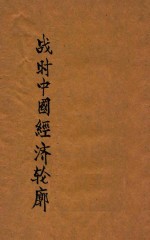 战时中國經济轮廓